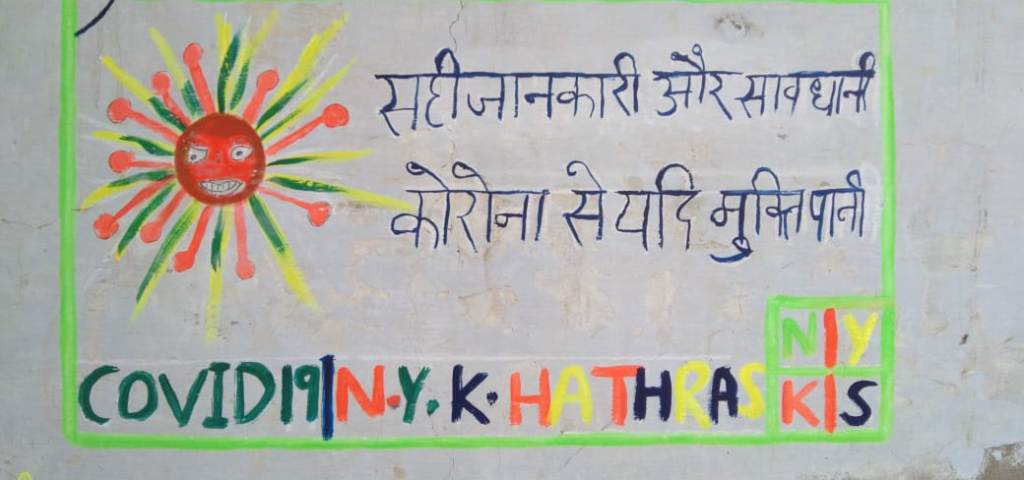 सही जानकारी और सावधानी
कोरोना से यदि मुक्ति पानी
COVID19|N.Y.K.HATHRAS
NIY
KIS